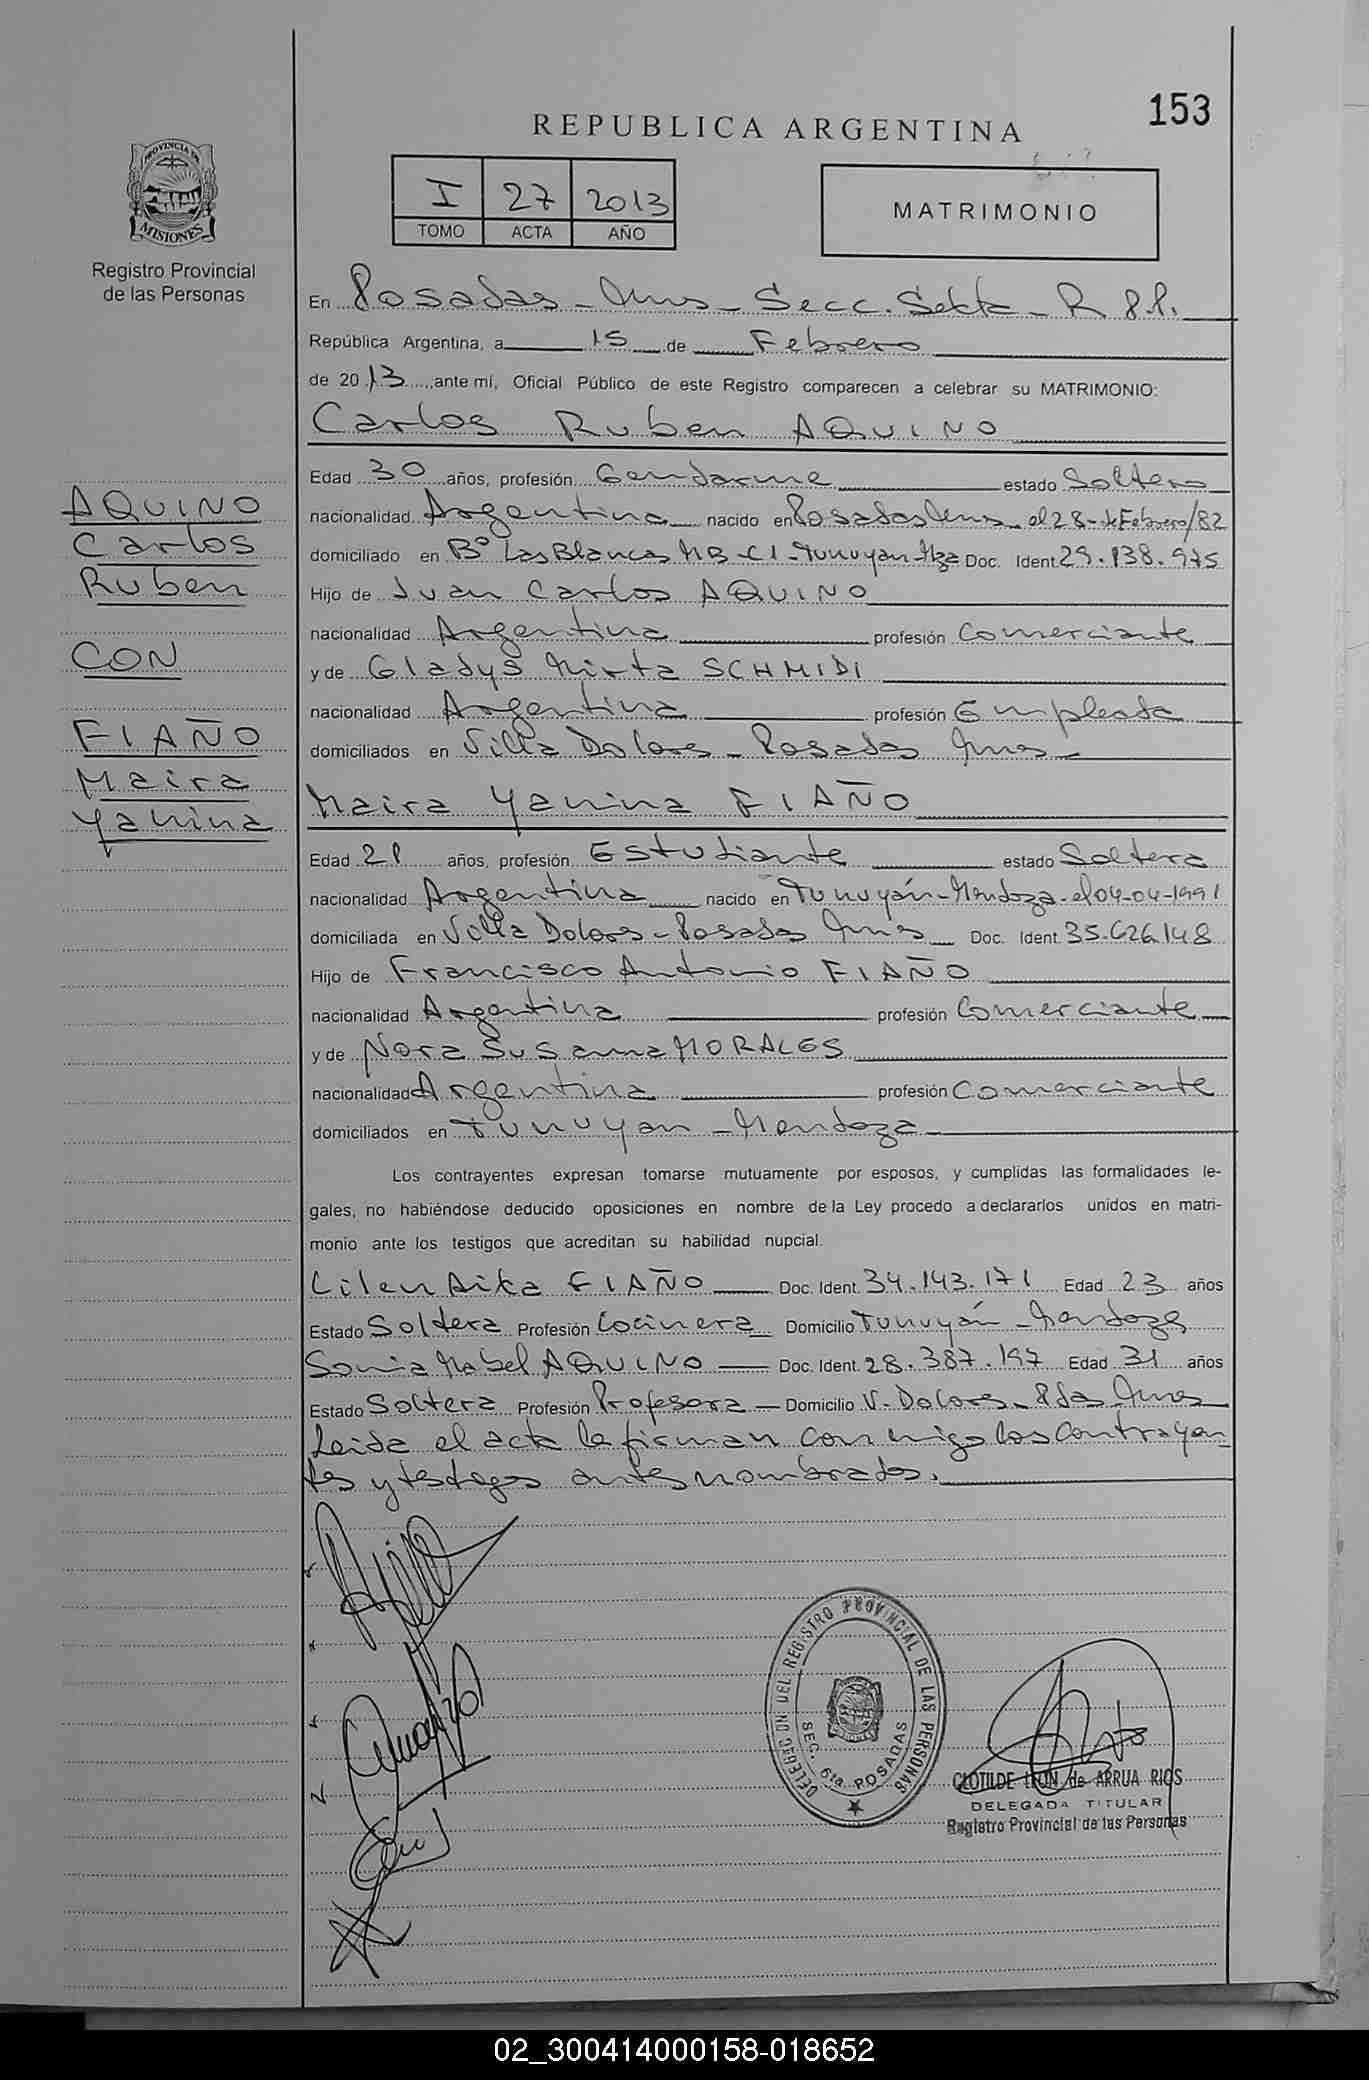 153
REPUBLICA ARGENTINA
I 27 2013
TOMO ACTA AÑO
MATRIMONIO
PROVINCIA DE
MISIONES
Registro Provincial
de las Personas
En Posadas - Mnes - Secc. Sexta - R.P.P.
República Argentina, a 15 de Febrero
de 2013, ante mí, Oficial Público de este Registro comparecen a celebrar su MATRIMONIO:
Carlos Ruben AQUINO
AQUINO
Carlos
Ruben
CON
FIAÑO
Maira
Yanina
Edad 30 años, profesión Gendarme estado Soltero
nacionalidad Argentina nacido en Posadas Mnes el 28-de Febrero/82
domiciliado en B° Las Blancas MB-C1-Tunuyan Mza Doc. Ident. 29.138.975
Hijo de Juan Carlos AQUINO
nacionalidad Argentina profesión Comerciante
y de Gladys Mirta SCHMIDI
nacionalidad Argentina profesión Empleada
domiciliados en Villa Dolores - Posadas Mnes
Maira Yanina FIAÑO
Edad 21 años, profesión Estudiante estado Soltera
nacionalidad Argentina nacido en Tunuyán-Mendoza-el 04-04-1991
domiciliada en Villa Dolores - Posadas Mnes Doc. Ident. 35.626.148
Hijo de Francisco Antonio FIAÑO
nacionalidad Argentina profesión Comerciante
y de Nora Susana MORALES
nacionalidad Argentina profesión Comerciante
domiciliados en Tunuyan - Mendoza
Los contrayentes expresan tomarse mutuamente por esposos, y cumplidas las formalidades le-
gales, no habiéndose deducido oposiciones en nombre de la Ley procedo a declararlos unidos en matri-
monio ante los testigos que acreditan su habilidad nupcial.
Lilen Aika FIAÑO Doc. Ident. 34.143.171 Edad 23 años
Estado Soltera Profesión Cocinera Domicilio Tunuyán - Mendoza
Sonia Mabel AQUINO Doc. Ident. 28.387.197 Edad 31 años
Estado Soltera Profesión Profesora Domicilio V. Dolores - Pdas Mnes
Leida el acta la firman conmigo los contrayen
tes y testigos antes nombrados.
DELEGACION DEL REGISTRO PROVINCIAL DE LAS PERSONAS
SEC. 6ta. POSADAS
CLOTILDE LEON de ARRUA RIOS
DELEGADA TITULAR
Registro Provincial de las Personas
02_300414000158-018652